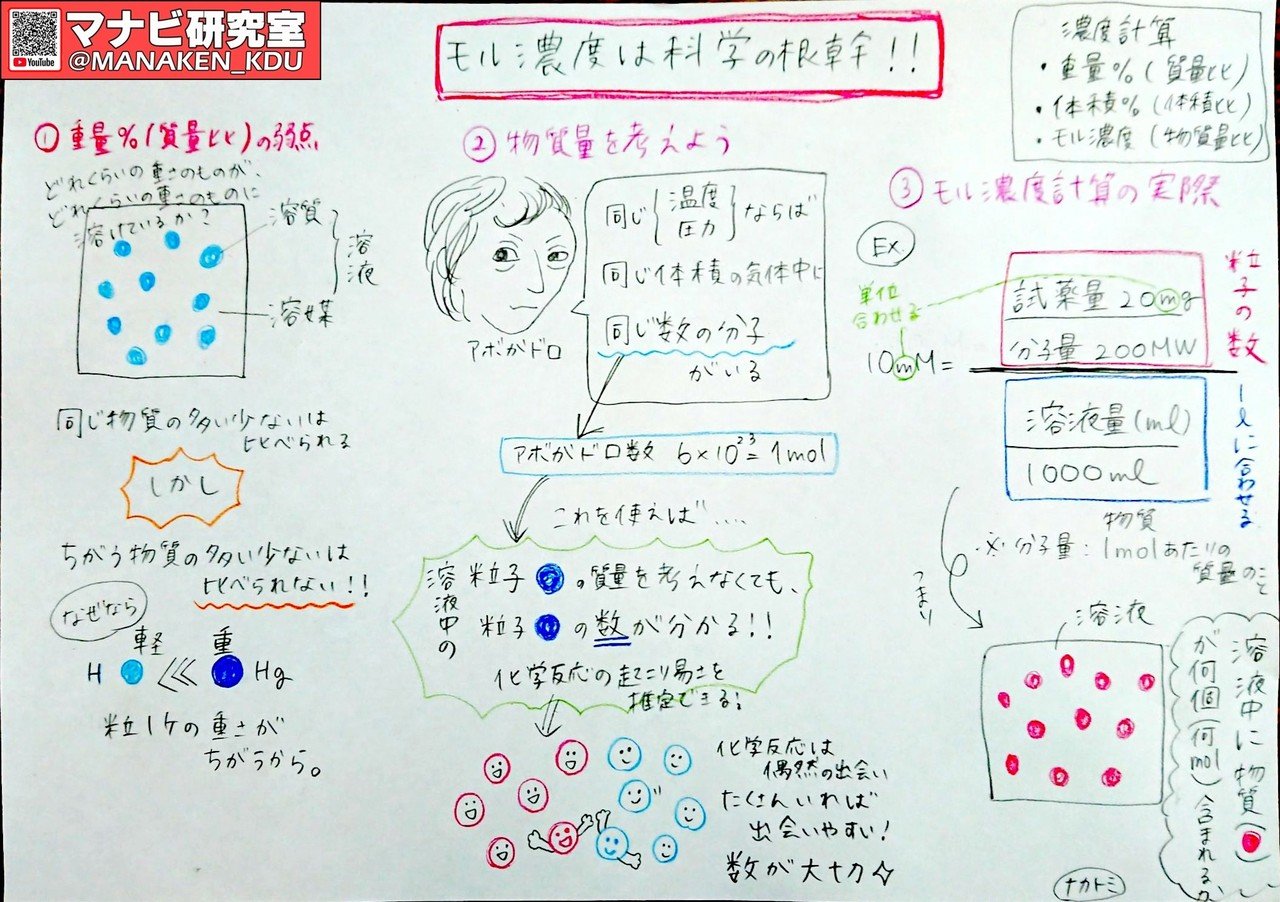 マナビ研究室
YouTube
@MANAKEN_KDU
モル濃度は科学の根幹!!
濃度計算
・重量%(質量比)
・体積%(体積比)
・モル濃度(物質量比)
①重量%(質量比)の弱点
どれくらいの重さのものが、
どれくらいの重さのものに
溶けているか?
溶質
溶液
溶媒
同じ物質の多い少ないは
比べられる
しかし
ちがう物質の多い少ないは
比べられない!!
なぜなら
軽 重
H << Hg
粒1ケの重さが
ちがうから。
②物質量を考えよう
アボガドロ
同じ{温度 圧力}ならば
同じ体積の気体中に
同じ数の分子
がいる
アボガドロ数 6×10²³=1mol
これを使えば....
溶液中の
粒子 の質量を考えなくても、
粒子 の数が分かる!!
化学反応の起こり易さを
推定できる!
化学反応は
偶然の出会い
たくさんいれば
出会いやすい!
数が大切☆
③モル濃度計算の実際
Ex
単位
合わせる
10mM=
試薬量 20mg
分子量 200MW
粒子の数
溶液量(ml)
1000ml
1lに合わせる
物質
※分子量:1molあたりの
質量のこと
つまり
溶液
溶液中に物質( )
が何個(何mol)含まれるか
ナカトミ